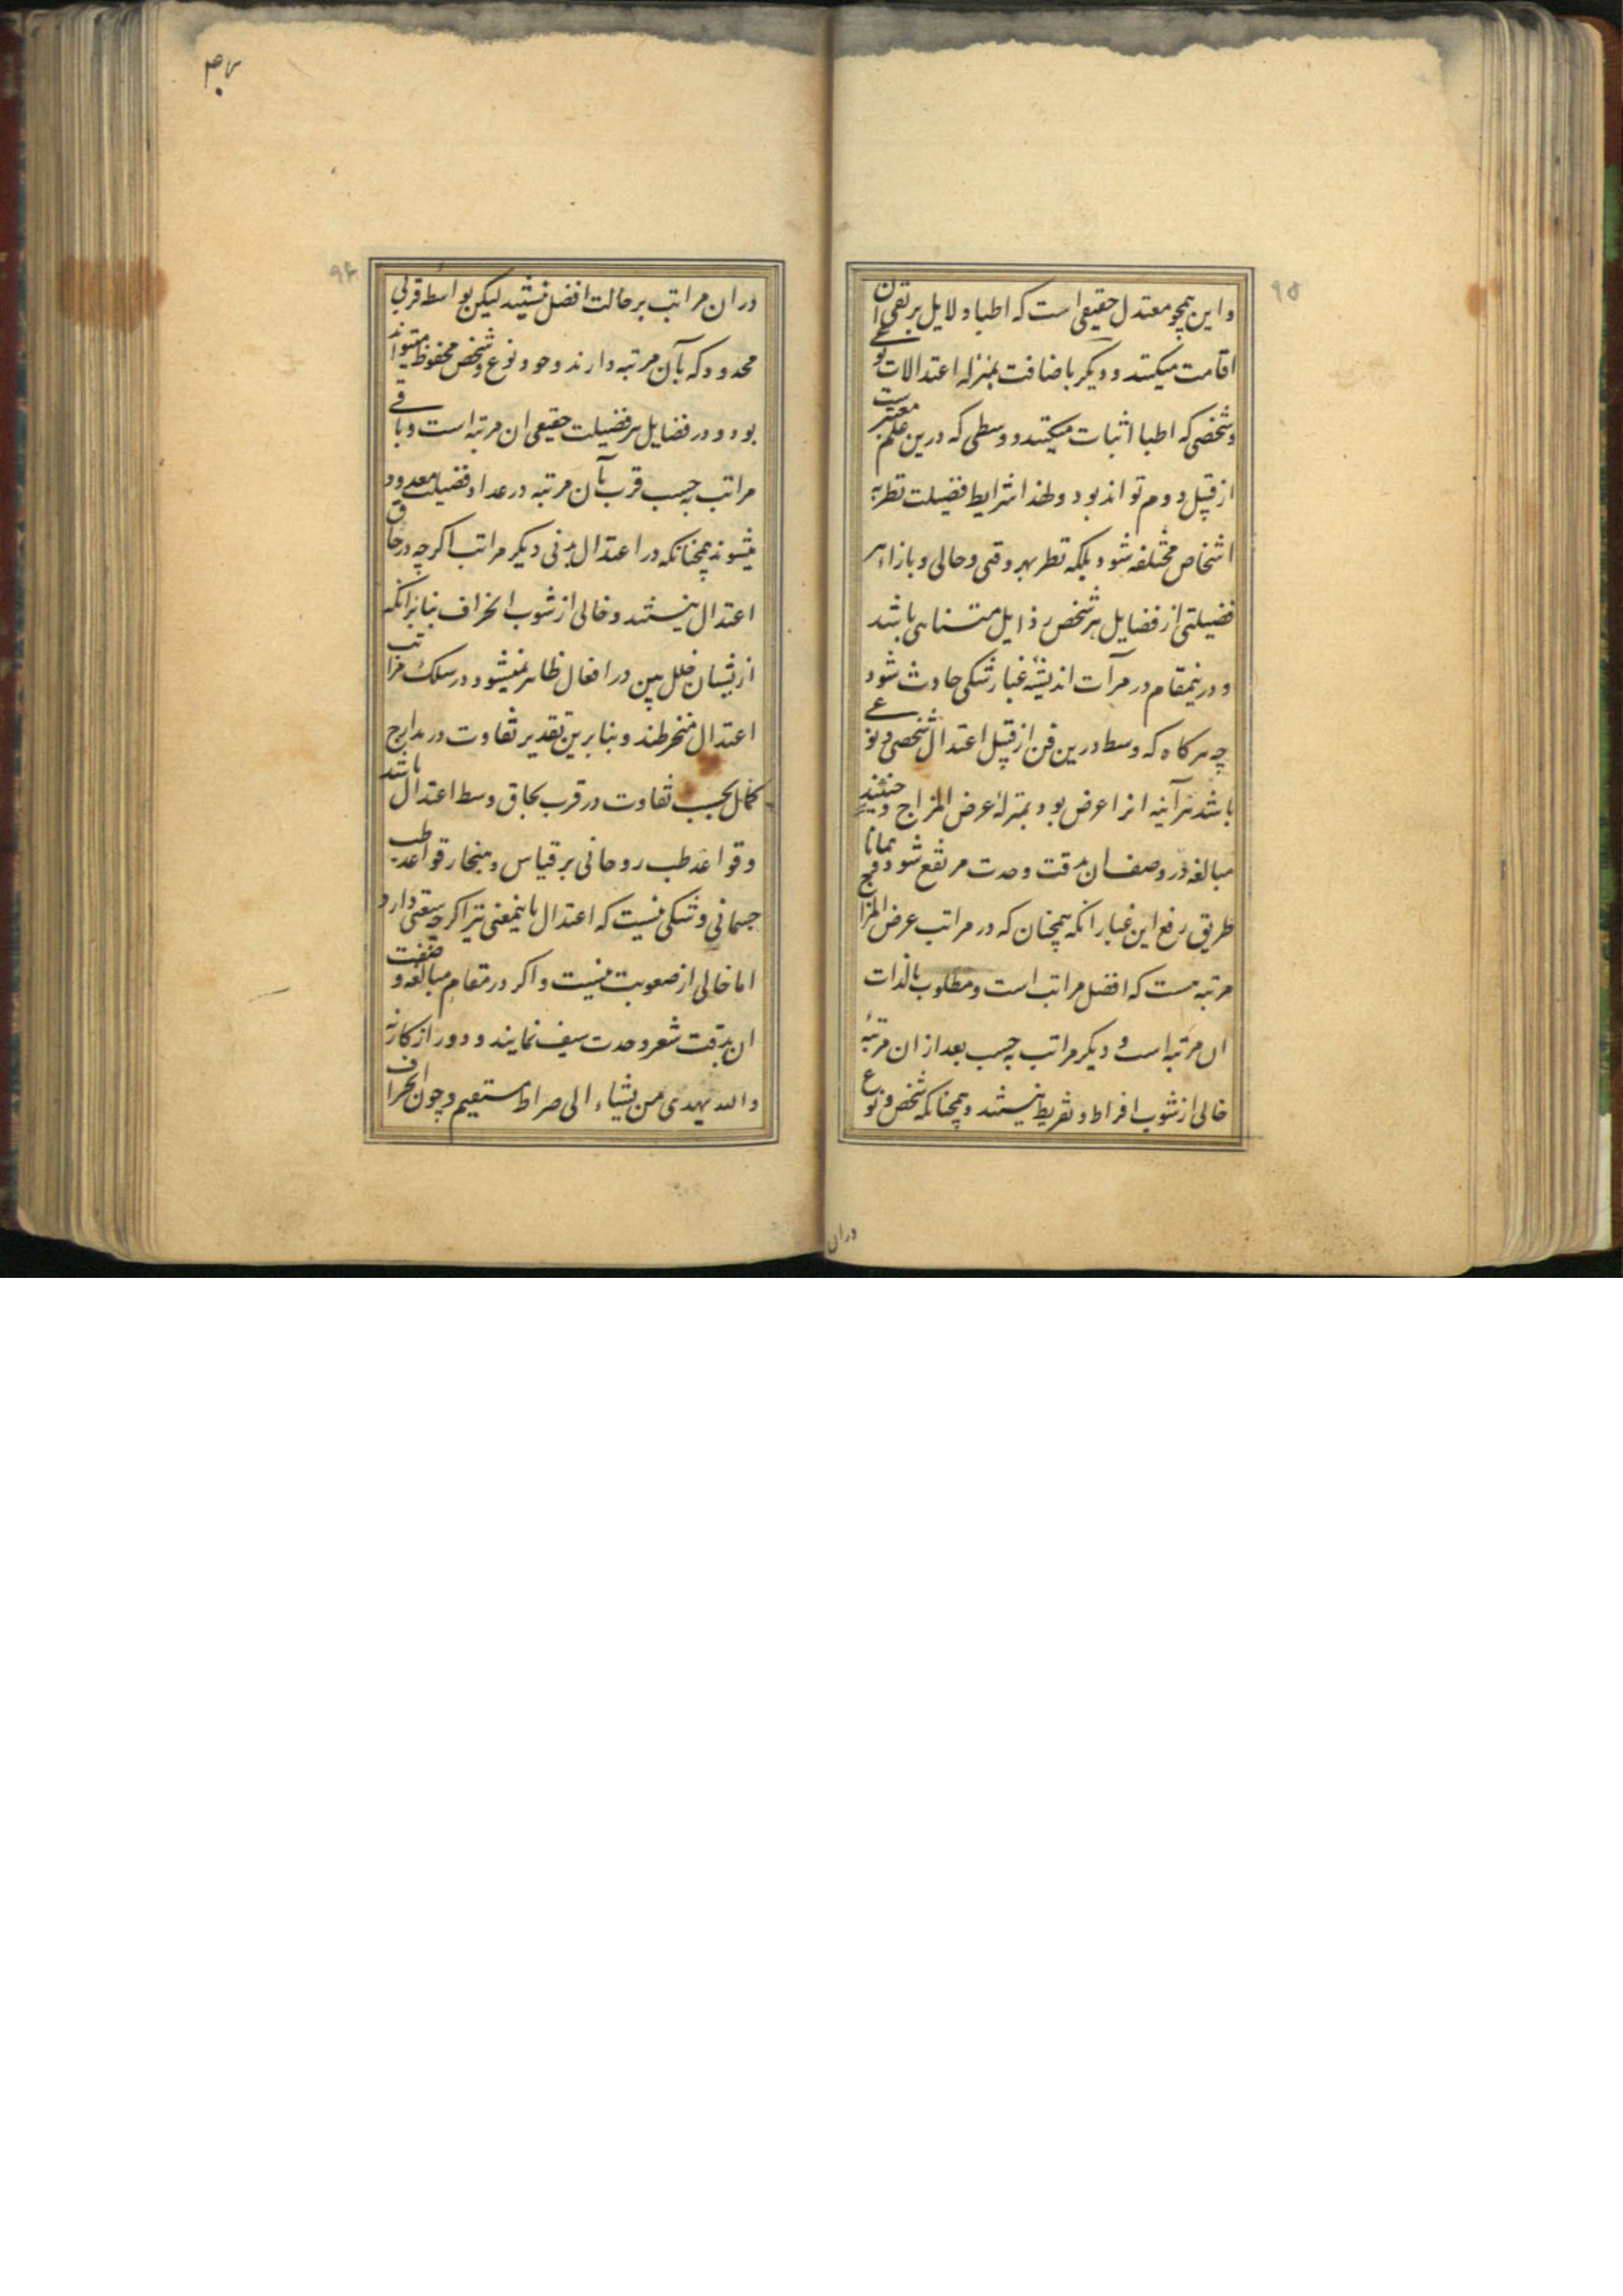 ۹۵
و این همچو معتدل حقیقی است که اطبا دلایل بر نفی ان
اقامت میکنند و دیگر باضافت بمنزله اعتدالات نوعی
و شخصی که اطبا اثبات میکنند و وسطی که درین علم معتبرست
از قبیل دوم تواند بود و لهذا شرایط فضیلت نظر به
اشخاص مختلفه شود بلکه نظر بهر وقتی و حالی و بازاء هر
فضیلتی از فضایل هر شخص رذایل متناهی باشد
و درینمقام در مرآت اندیشه غبار شکی حادث شود
چه هر کاه که وسط درین فن از قبیل اعتدال شخصی و نوعی
باشد هرآینه انرا عرض بود بمنزلهٔ عرض المزاج و حینئذ
مبالغه در وصف ان بدقت و حدت مرتفع شود و همانا
طریق رفع این غبار انکه همچنان که در مراتب عرض المزاج
مرتبه هست که افضل مراتب است و مطلوب بالذات
ان مرتبه است و دیکر مراتب به حسب بعد از ان مرتبهٔ
خالی از شوب افراط و تفریط نیستند و همچنانکه شخص و نوع
دران
۹۶
دران مراتب بر حالت افضل نیستند لیکن بواسطه قربی
محدود که بآن مرتبه دارند وجود نوع و شخص محفوظ میتواند
بود و در فضایل هر فضیلت حقیقی ان مرتبه است و باقی
مراتب به حسب قرب بآن مرتبه در عداد فضیلت معدود
میشوند همچنانکه در اعتدال بدنی دیکر مراتب اکرچه در حاق
اعتدال نیستند و خالی از شوب انحراف نه بنا برانکه
ازیشان خلل بین در افعال ظاهر نمیشود در سلک مراتب
اعتدال منخرطند و بنا برین تقدیر تفاوت در مدارج
کمال بحسب تفاوت در قرب بحاق وسط اعتدال باشد
و قواعد طب روحانی بر قیاس و هنجار قواعد طب
جسمانی و شکی نیست که اعتدال باینمعنی نیز اکرچه سعتی دارد
اما خالی از صعوبت نیست و اکر در مقام مبالغه وصفت
ان بدقت شعر و حدت سیف نمایند و دور از کار نه
والله یهدی من یشاء الی صراط مستقیم و چون انحراف